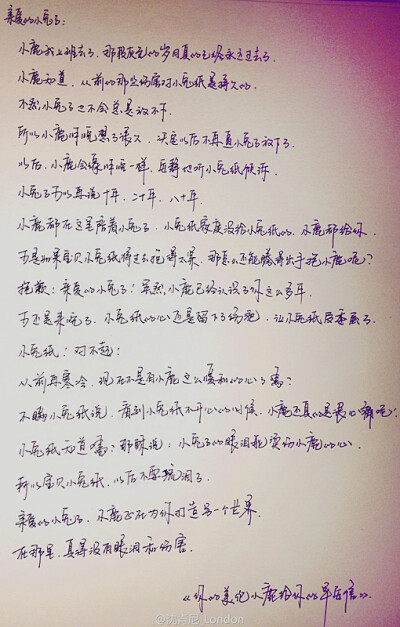 亲爱的小兔子：
小鹿就上班去了，那段灰色的岁月真的已经永远过去了。
小鹿知道，从前的那些伤害对小兔纸是持久的
不然小兔子也不会总是放不下
所以小鹿昨晚想了很久，决定以后不再逼小兔子放下了
以后，小鹿会像昨晚一样，安静地听小兔纸倾诉
小兔子可以再说十年，二十年，八十年，
小鹿都在这里陪着小兔子，小兔纸家庭没给小兔纸的，小鹿都给你
可是如果宝贝小兔纸将过去抱得太紧，那怎么还能腾得出手抱小鹿呢？
抱歉，亲爱的小兔子！虽然小鹿已经认识了你这么多年
可还是来晚了，小兔纸的心还是留下了伤疤，让小兔纸受委屈了
小兔纸，对不起！
从前再寒冷，现在不是有小鹿这么暖和的心了嘛？
不瞒小兔纸说，看到小兔纸不开心的时候，小鹿还真的是很心痛呢！
小兔纸知道嘛？那就说：小兔子的眼泪砸伤小鹿的心
所以宝贝小兔纸，以后不要流泪了
亲爱的小兔子，小鹿正在为你打造另一个世界
在那里，真得没有眼泪和伤害.
《你的美北小鹿给你的早安信》
London